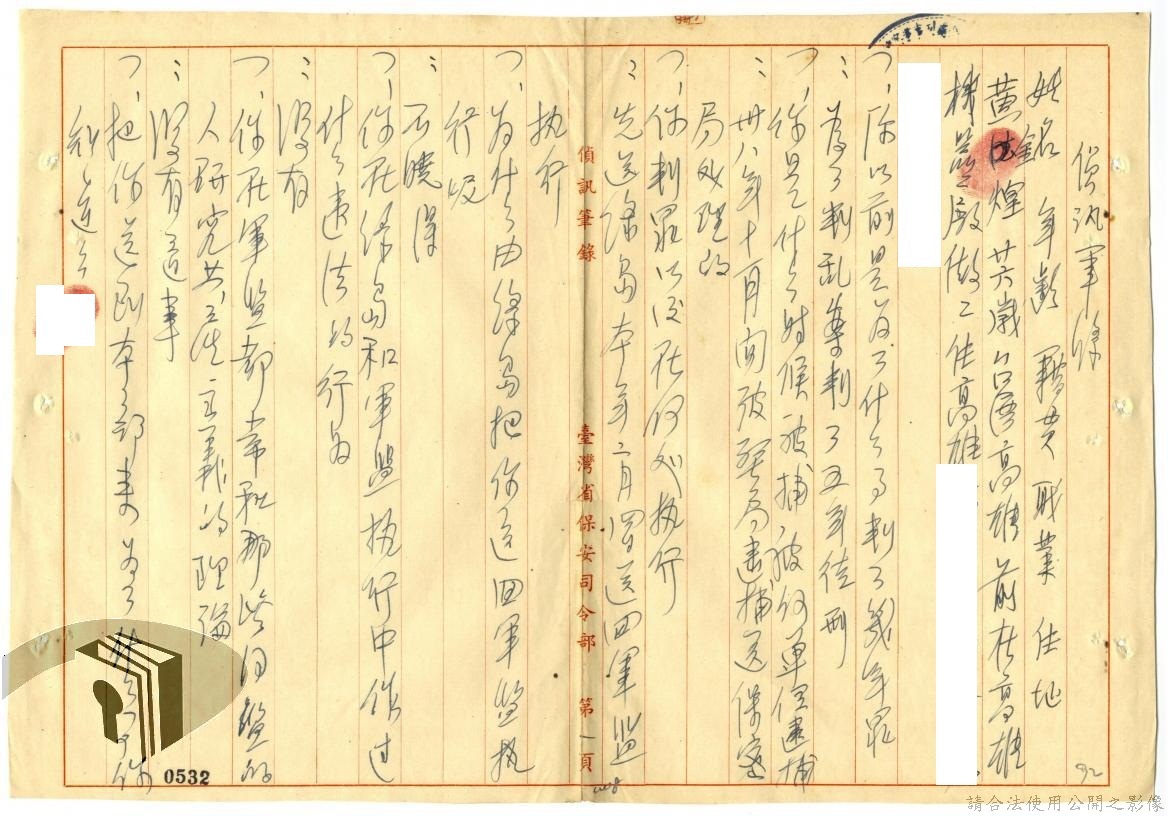 偵訊筆錄
姓名 年齡 籍貫 職業 住址
黃鐘煌 廿六歲 台灣高雄 前在高雄
機器廠做工 住高雄
問、你以前是為了什么事判了幾年罪
答：為了判乱案判了五年徒刑
問、你是什么時候被捕被何單位逮捕
答：卅八年十月間被警局逮捕送保安
局处理的
問、你判罪以後在何处执行
答：先送綠島本年二月間送回軍監
执行
偵訊筆錄 臺灣省保安司令部 第一頁
問、為什么由綠島把你送回軍監执
行呢
答：不曉得
問、你在綠島和軍監执行中作过
什么違法的行為
答：沒有
問、你在軍監部常和那些同監的
人研究共産主義的理論
答：沒有這事
問、把你送到本部來為了什么事你
知道么
0532
92
請合法使用公開之影像